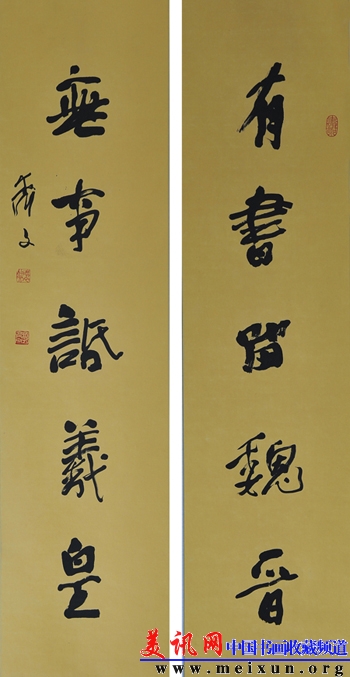 有書留魏晋
無事話羲皇
美讯网 中国书画收藏频道
www.meixun.org